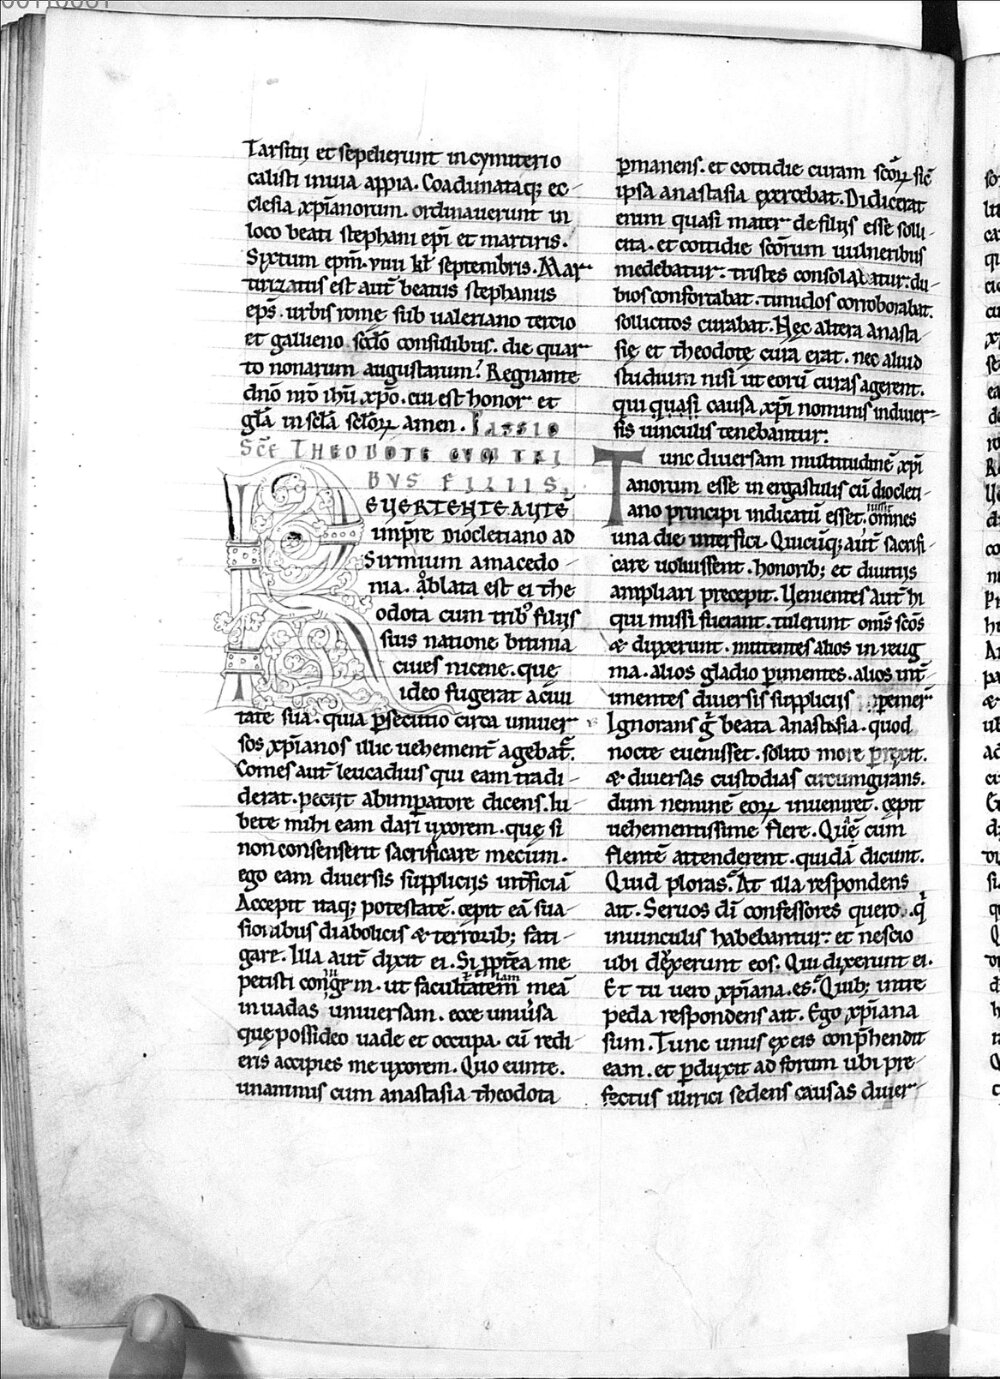 Tarsitij et sepelierunt in cymiterio
calisti in uia appia. Coadunataq; ec-
clesia xp̄ianorum. ordinauerunt in
loco beati stephani ep̄i et martiris.
Syxtum ep̄m. viiii kl̄ septembris. Mar-
tirizatus est aut̄ beatus stephanus
ep̄s. urbis rome sub ualeriano tercio
et gallieno sc̄do consulibus. die quar-
to nonarum augustarum. Regnante
dn̄o nr̄o ih̄u xp̄o. cui est honor et
gl̄a in sc̄la sc̄lorꝝ amen. PASSIO
SC̄E THEODOTE CUM TRI
BVS FILIIS.
REUERTENTE AUTĒ
imp̄re Diocletiano ad
Sirmium a macedo-
nia. ablata est ei the
odota cum trib; filijs
suis natione bitinia
ciues nicene. que
ideo fugerat a ciui
tate sua. quia ꝑsecutio circa uniuer
sos xp̄ianos illic uehement̄ agebat̄.
Comes aut̄ leucadius qui eam tradi-
derat. pecijt ab imꝑatore dicens. Iu-
bete mihi eam dari uxorem. que si
non consenserit sacrificare mecum.
ego eam diuersis supplicijs int̄ficiā
Accepit itaq; potestatē. cepit eā sua-
sionibus diabolicis & terrorib; fati-
gare. Illa aut̄ dixit ei. Si ꝓpt̄ea me
petisti coniugem. ut facultatem meā
inuadas uniuersam. ecce uniu̅sa
que possideo uade et occupa. cū redi-
eris accipies me uxorem. Quo eunte.
unanimis cum anastasia theodota
ꝑmanens. et cottidie curam sc̄orꝝ sic̄
ipsa anastasia exercebat. Didicerat
enim quasi mater de filijs esse solli-
cita. et cottidie sc̄orum uulneribus
medebatur. tristes consolabatur. du-
bios confortabat. timidos corroborabat.
sollicitos curabat. Hec altera anasta-
sie et theodote cura erat. nec aliud
studium nisi ut eorū curas agerent.
qui quasi causa xp̄i nominis in diuer-
sis uinculis tenebantur.
Tunc diuersam multitudinē xp̄i
anorum esse in ergastulis cū diocleti-
ano principi indicatū esset. iussit omnes
una die interfici. Quicūq; aut̄ sacrifi-
care uoluissent. honorib; et diuitijs
ampliari precepit. Uenientes aut̄ hi
qui missi fuerant. tulerunt om̄s sc̄os
& duxerunt. mittentes alios in reug
ma. alios gladio ꝑimentes. alios int̄
imentes diuersis supplicijs ꝑemer̄
Ignorans g̊ beata Anastasia. quod
nocte euenisset. solito more ꝑrexit.
& diuersas custodias circumgirans.
dum neminē eorꝝ inueniret. cepit
uehementissime flere. Quē cum
flentē attenderent. quidā dicunt.
Quid ploras. At illa respondens
ait. Seruos dī confessores quero. qͥ
in uinculis habebantur. et nescio
ubi duxerunt eos. Qui dixerunt ei.
Et tu uero xp̄iana es. Quib; intre
peda respondens ait. Ego xp̄iana
sum. Tunc unus ex eis conp̄hendit
eam. et ꝑduxit ad forum ubi pre-
fectus illirici sedens causas diuer-